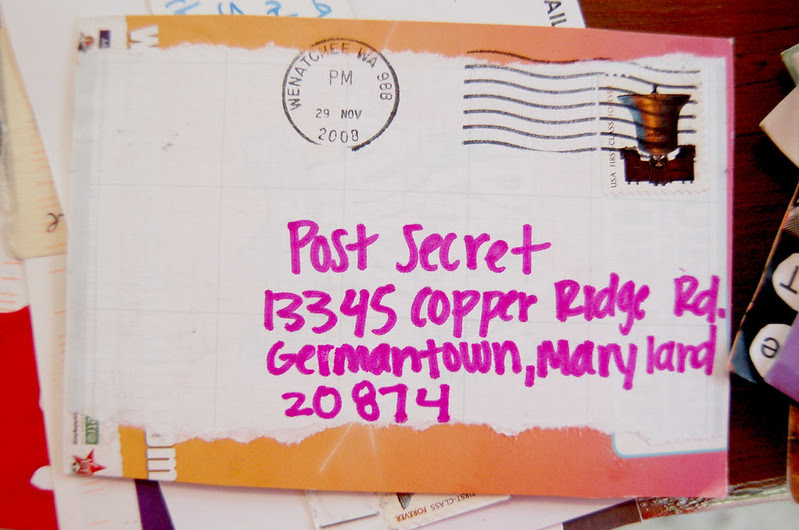 AIL
WENATCHEE WA 988
PM
29 NOV
2008
USA FIRST-CLASS FOREVER
Post Secret
13345 Copper Ridge Rd.
Germantown, Maryland
20874
om
FIRST-CLASS FOREVER
T
e